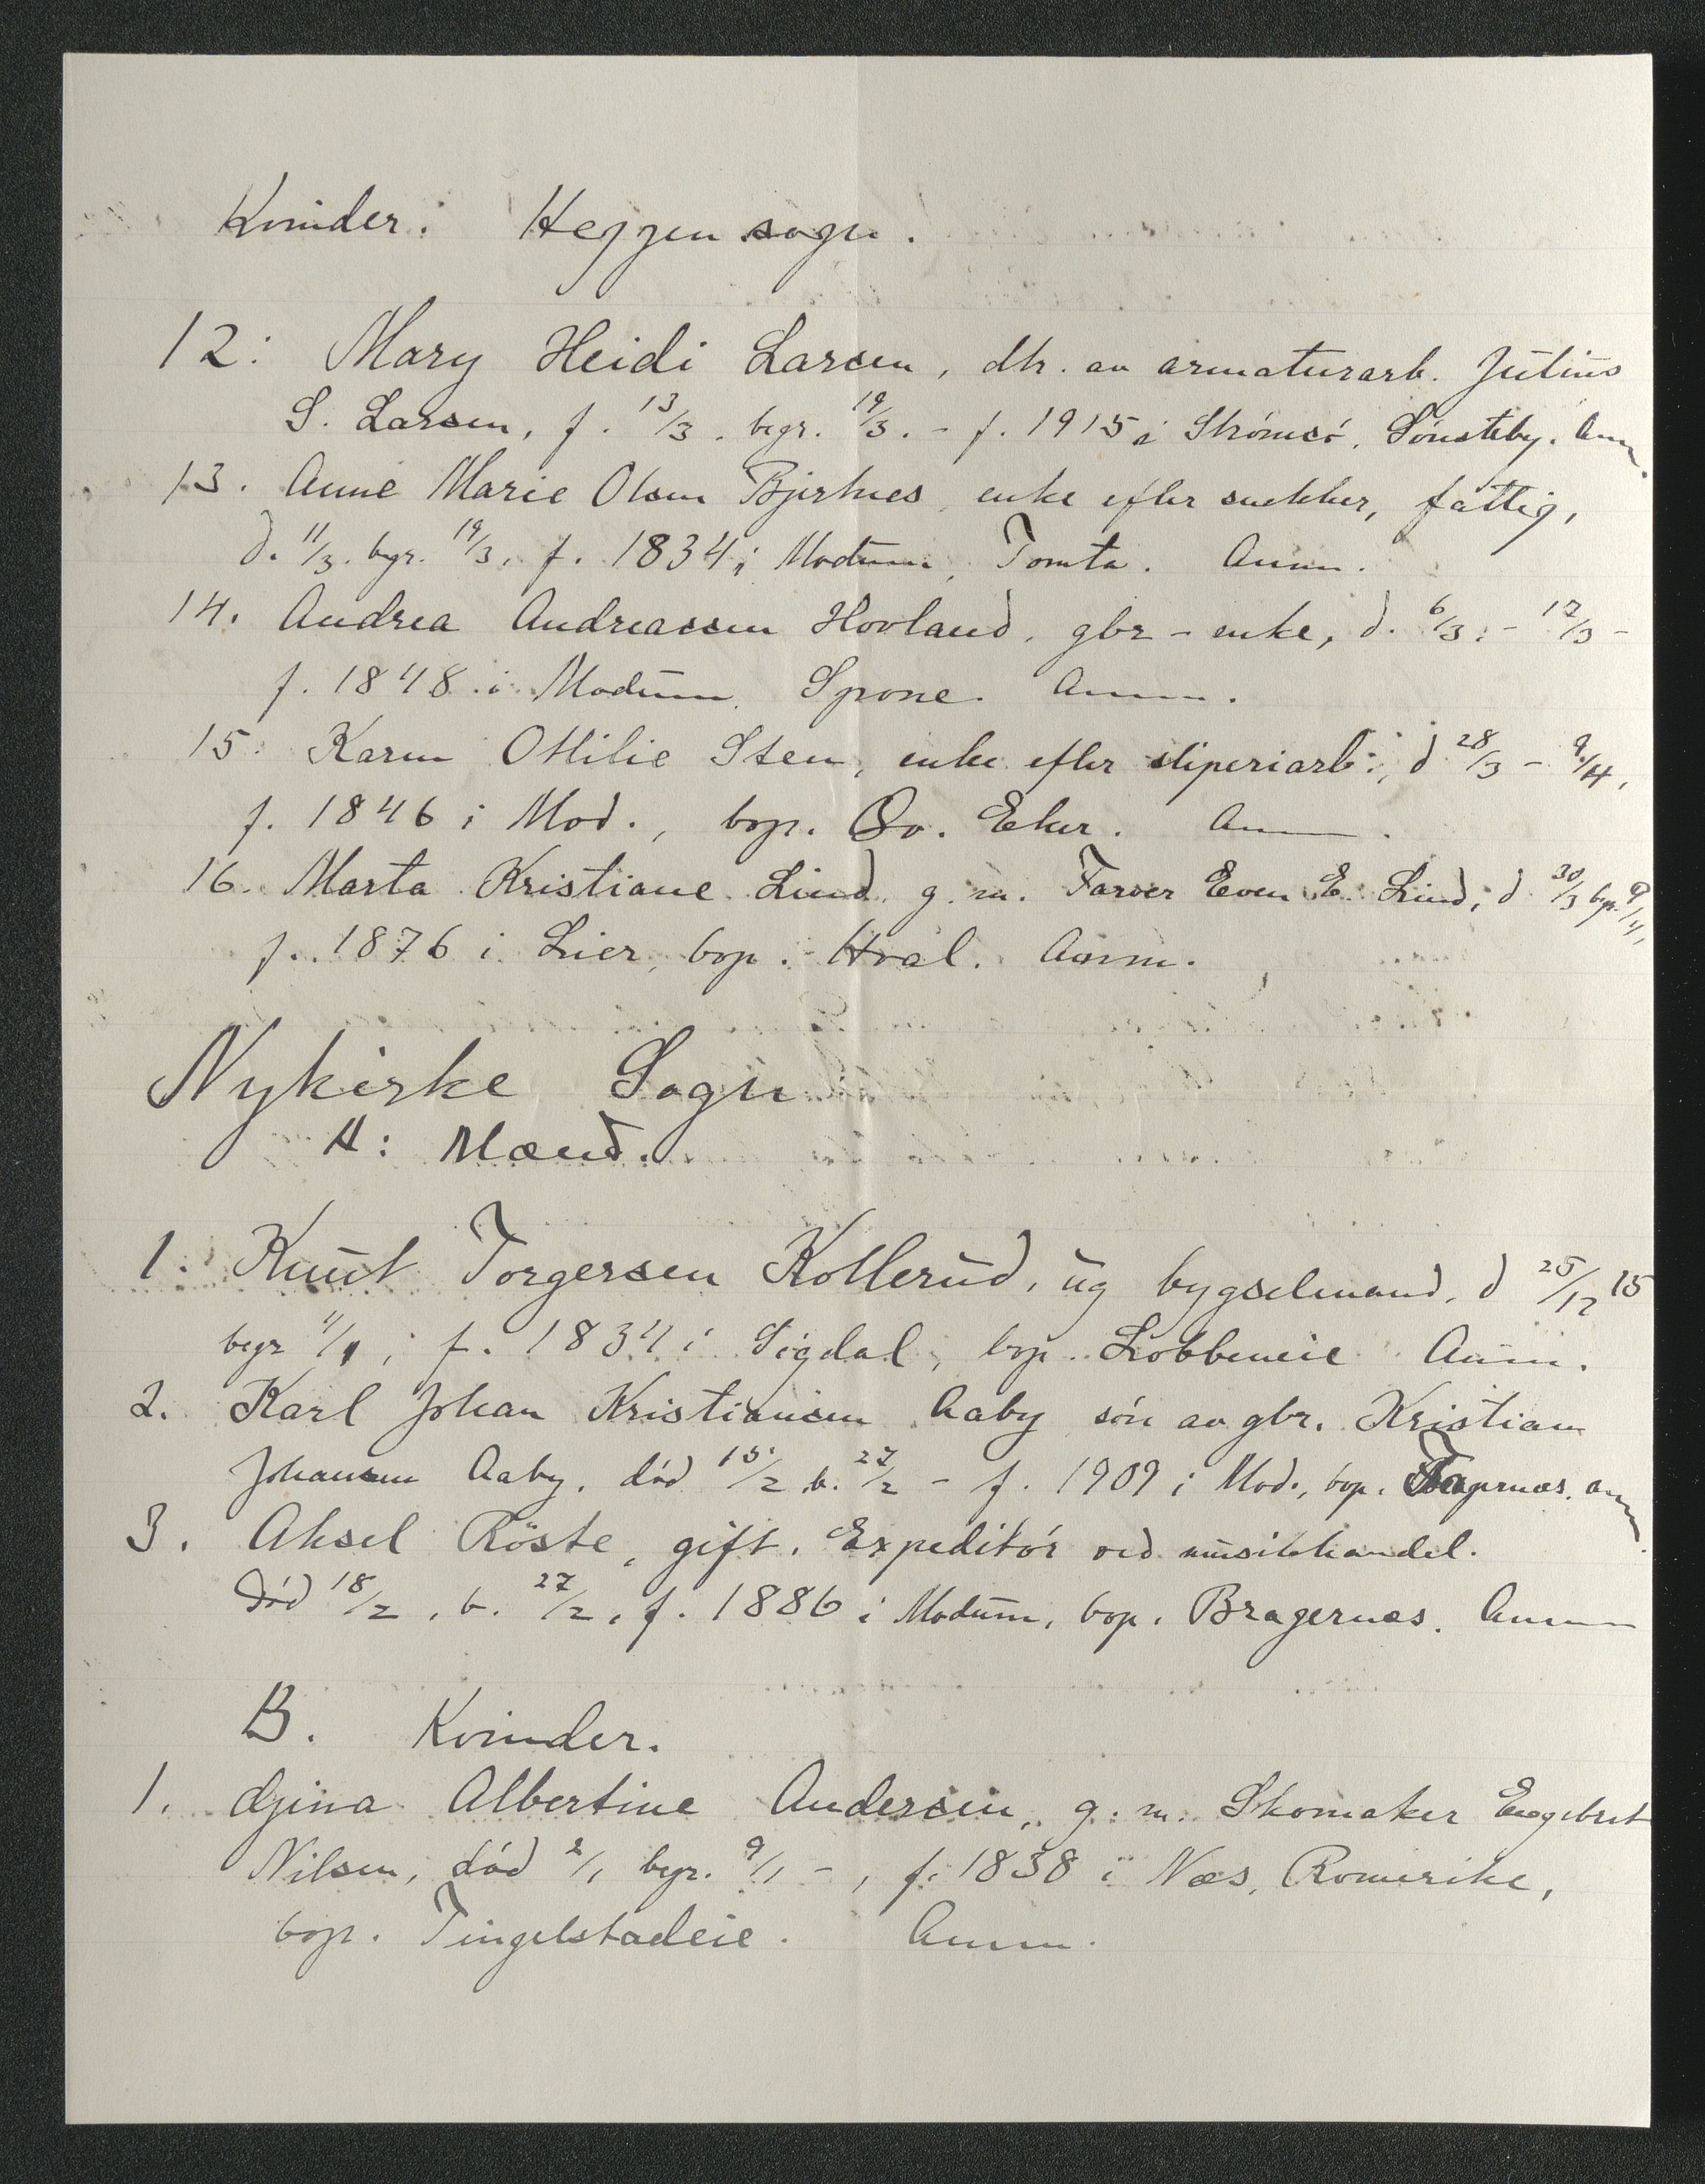 Kvinder. Heggen sogn.
12: Mary Heidi Larsen, dtr. av armaturarb. Julius
S. Larsen, f. 13/3. begr. 19/3. - f. 1915 i Strömsö, Sönsteby. Anm.
13. Anne Marie Olsen Bjertnes, enke efter snekker, fattig,
d. 11/3. begr. 19/3, f. 1834 i Modum, Tomta. Anm.
14. Andrea Andreassen Hovland, gbr - enke, d. 6/3. - 17/3 -
f. 1848 i Modum, Spone. Anm.
15. Karen Otilie Steen, enke efter sliperiarb., d 28/3 - 9/4,
f. 1846 i Mod., bop. Öv. Eker. Anm.
16. Marta Kristiane Lind g. m. Farver Even E. Lind, d 30/3 begr. 9/4,
f. 1876 i Lier, bop. Hval. Anm.
Nykirke Sogn
A: Mænd.
1. Knut Torgersen Kollerud, ug bygselmand, d 25/12 15
begr 4/1, f. 1834 i Sigdal, bop. Lobbeneie Anm.
2. Karl Johan Kristiansen Aaby sön av gbr. Kristian
Johansen Aaby, död 15/2 b. 27/2 - f. 1909 i Mod., bop. Anm.
3. Aksel Röste, gift. Expeditör ved musikhandel.
Död 18/2, b. 27/2, f. 1886 i Modum, bop. Bragernæs. Anm
B. Kvinder.
1. Gina Albertine Andersen, g. m. Skomaker Engebret
Nilsen, död 2/1 begr. 9/1 -, f. 1838 i Næs, Romerike,
bop. Tingelstadeie. Anm.